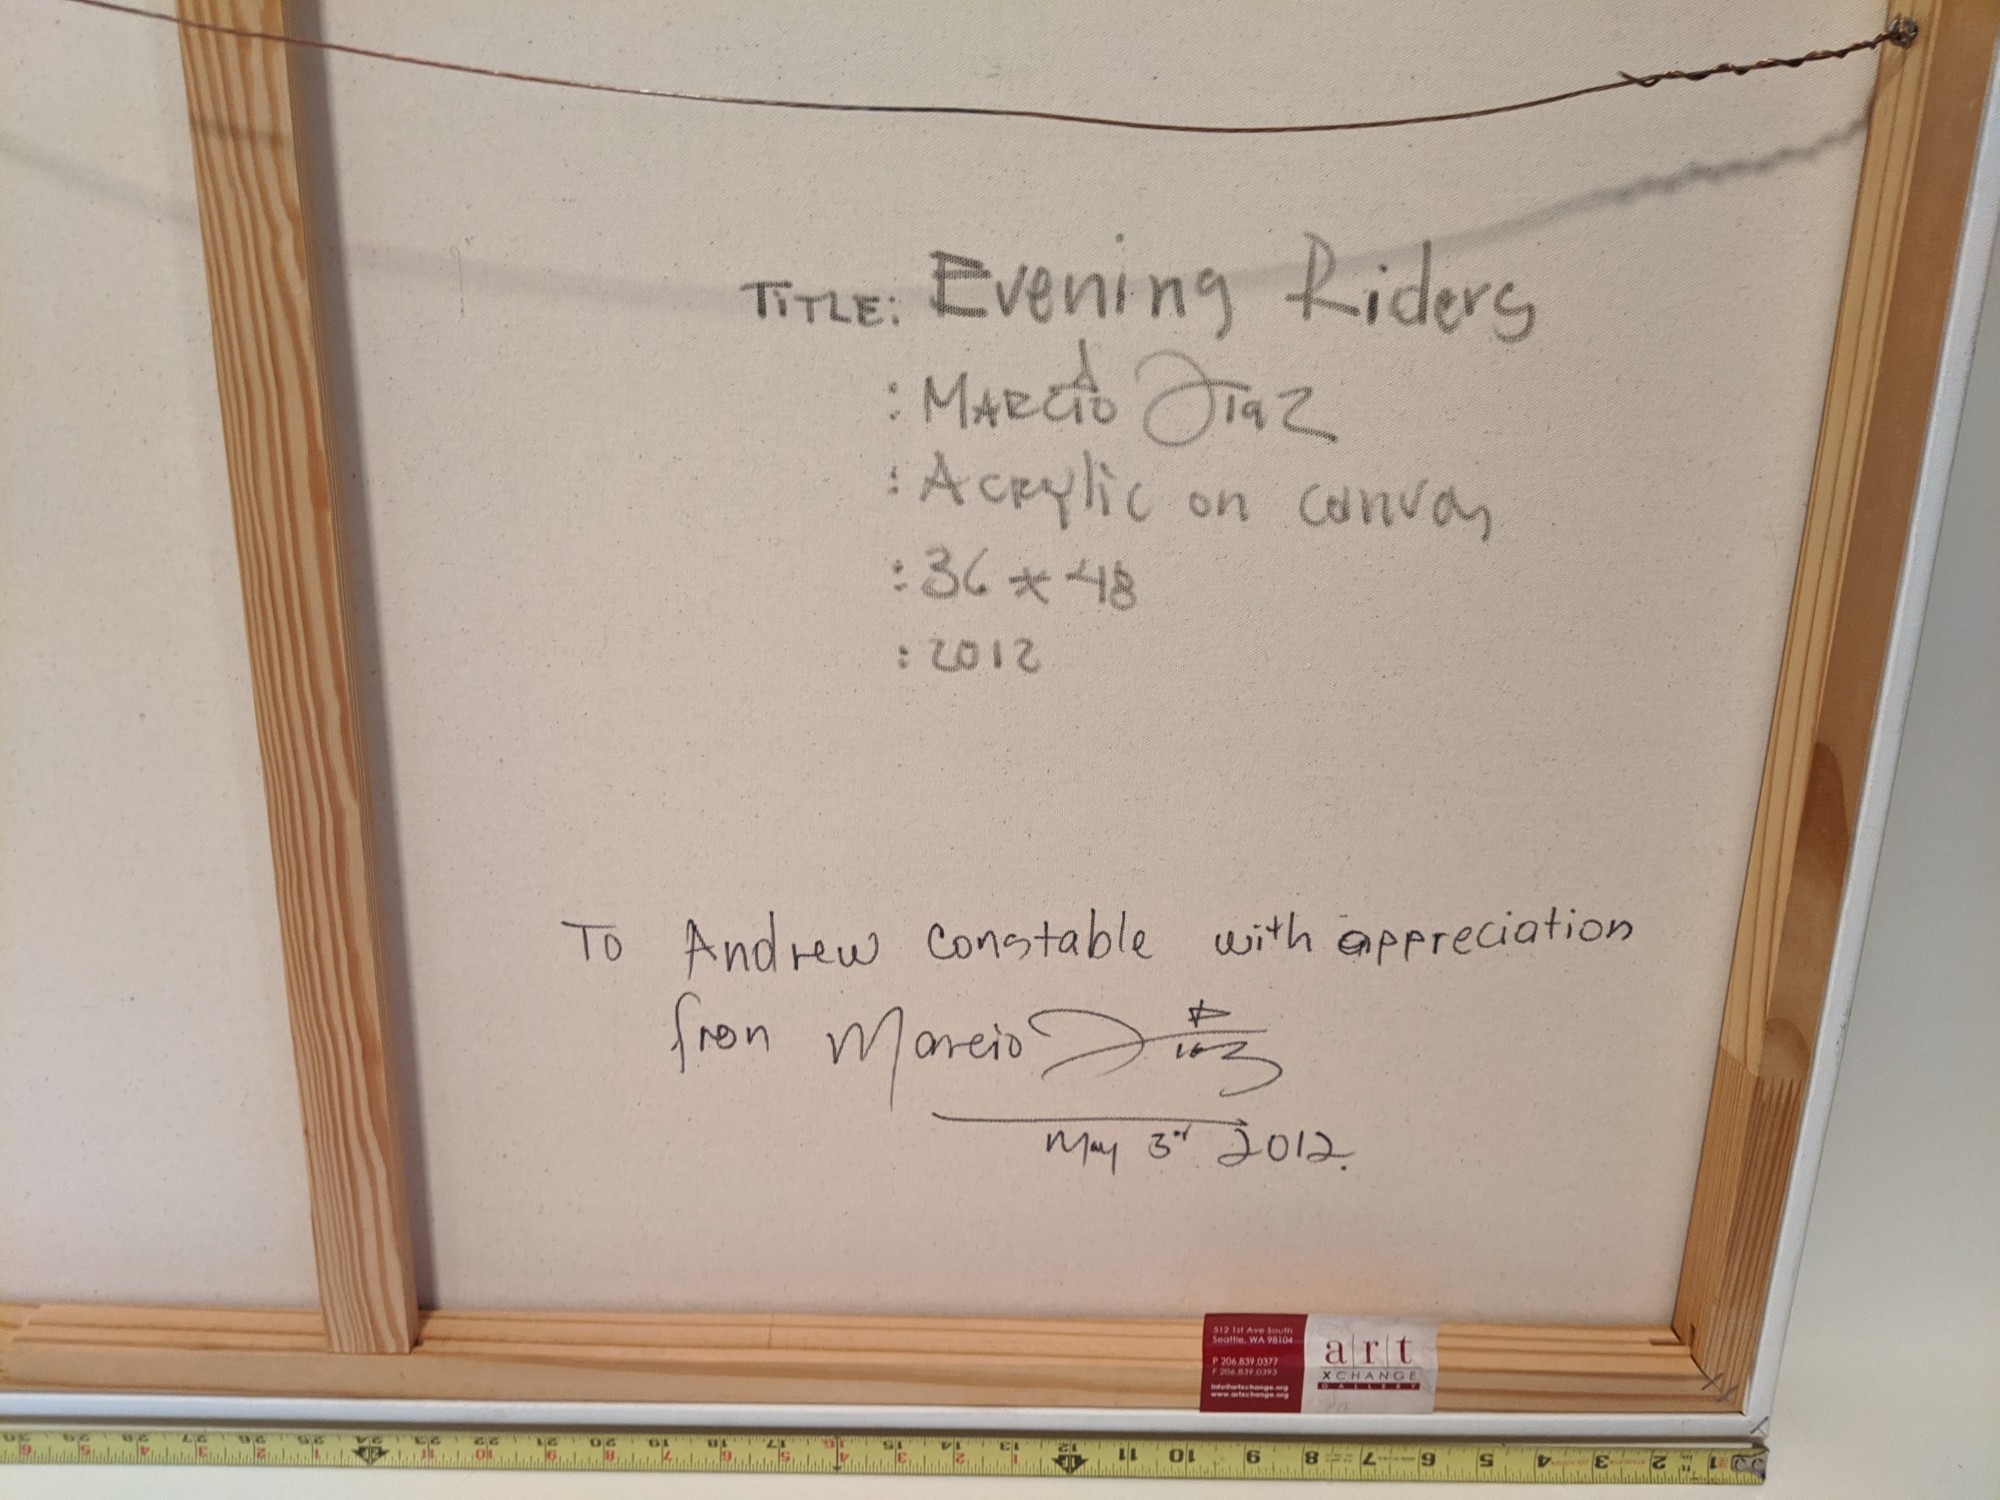 TITLE: Evening Riders
: MARCIO Diaz
: Acrylic on canvas
: 36 x 48
: 2012
To Andrew Constable with appreciation
from Marcio Diaz
May 3rd 2012.
512 1st Ave South
Seattle, WA 98104
P 206.839.0377
F 206.839.0393
info@artxchange.org
www.artxchange.org
a|r|t
XCHANGE
GALLERY
6 5 4 3 2 1 24 11 10 9 8 7 6 5 4 3 2 1 12 11 10 9 8 7 6 5 4 3 2 1
30 29 28 27 26 25 23 22 21 20 19 18 17 16 15 14 13 12